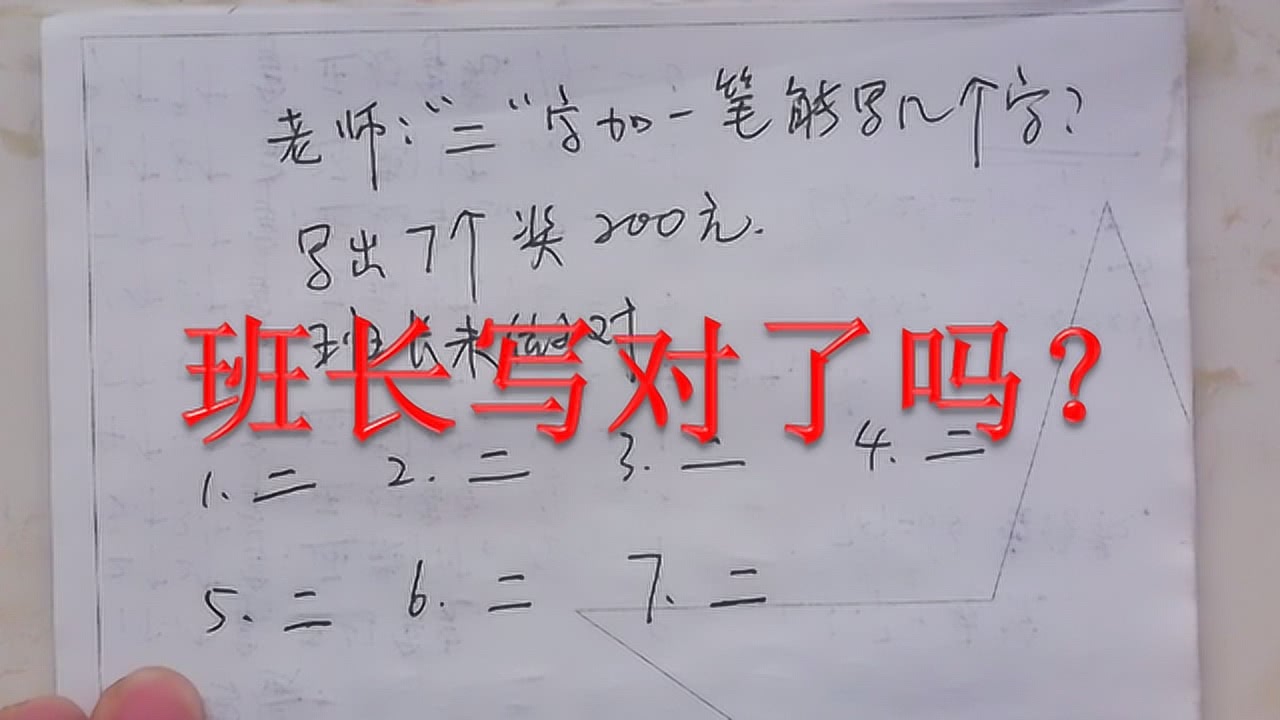 老师:“二”字加一笔能写几个字?
写出7个奖200元.
班长未做对
班长写对了吗?
1.二 2.二 3.二 4.二
5.二 6.二 7.二